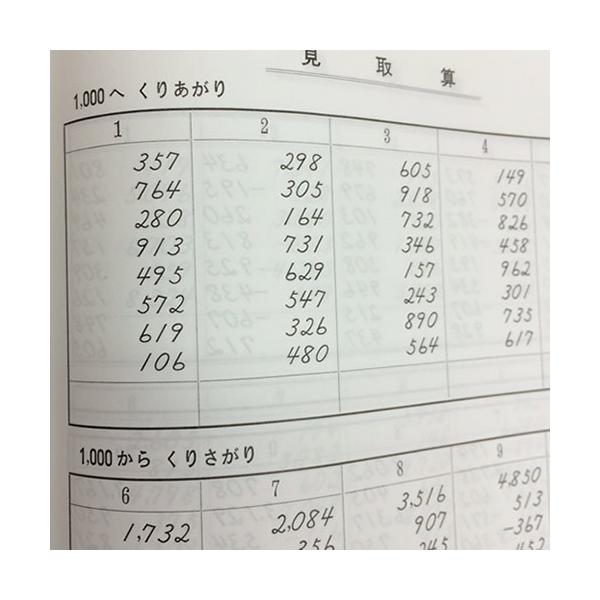 見取算
1,000へ くりあがり
1 2 3 4
357 298 605 149
764 305 918 570
280 164 732 826
913 731 346 458
495 629 157 962
572 547 243 301
619 326 890 735
106 480 564 617
1,000から くりさがり
6 7 8 9
1,732 2,084 3,516 4,850
907 513
-367